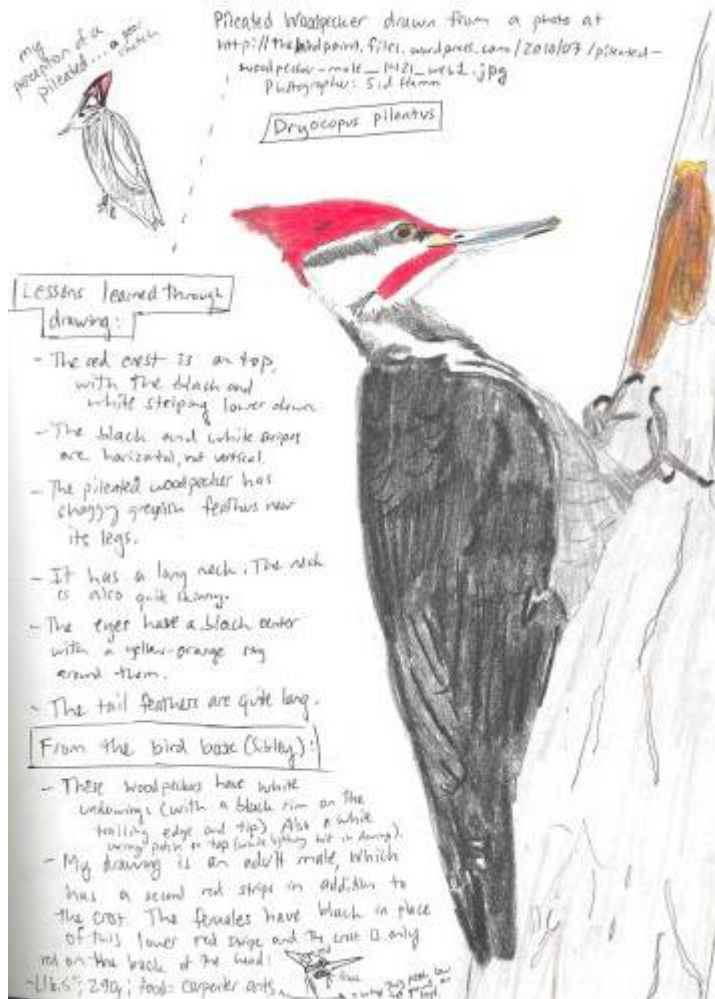 my
perception of a
pileated... a poor
sketch
Pileated Woodpecker drawn from a photo at
http://thebirdpoint.files.wordpress.com/2010/07/pileated-
woodpecker-male_1421_web1.jpg
Photographer: Sid Hamm
Dryocopus pileatus
Lessons learned through
drawing:
- The red crest is on top,
with the black and
white striping lower down
- The black and white stripes
are horizontal, not vertical.
- The pileated woodpecker has
shaggy greyish feathers near
its legs.
- It has a long neck. The neck
is also quite skinny.
- The eyes have a black center
with a yellow-orange ring
around them.
- The tail feathers are quite long.
From the bird base (Sibley):
- These woodpeckers have white
underwings (with a black rim on the
trailing edge and tip) Also a white
on top
- My drawing is an adult male, which
has a second red stripe in addition to
the crest. The females have black in place
of this lower red stripe and the crest is only
red on the back of the head:
-L16.5"; 290g; food: carpenter ants